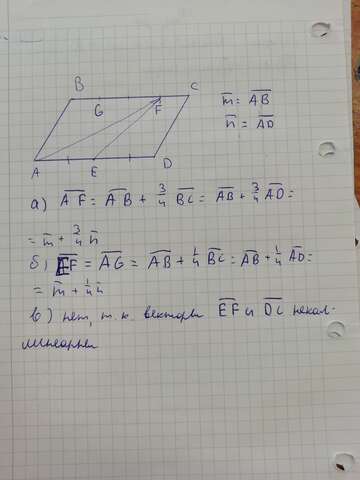 B C
G F
A E D
m̅ = A̅B̅
n̅ = A̅D̅
а) A̅F̅ = A̅B̅ + 3/4 B̅C̅ = A̅B̅ + 3/4 A̅D̅ =
= m̅ + 3/4 n̅
б) E̅F̅ = A̅G̅ = A̅B̅ + 1/4 B̅C̅ = A̅B̅ + 1/4 A̅D̅ =
= m̅ + 1/4 n̅
в) нет, т.к. векторы E̅F̅ и D̅C̅ некол-
линеарны